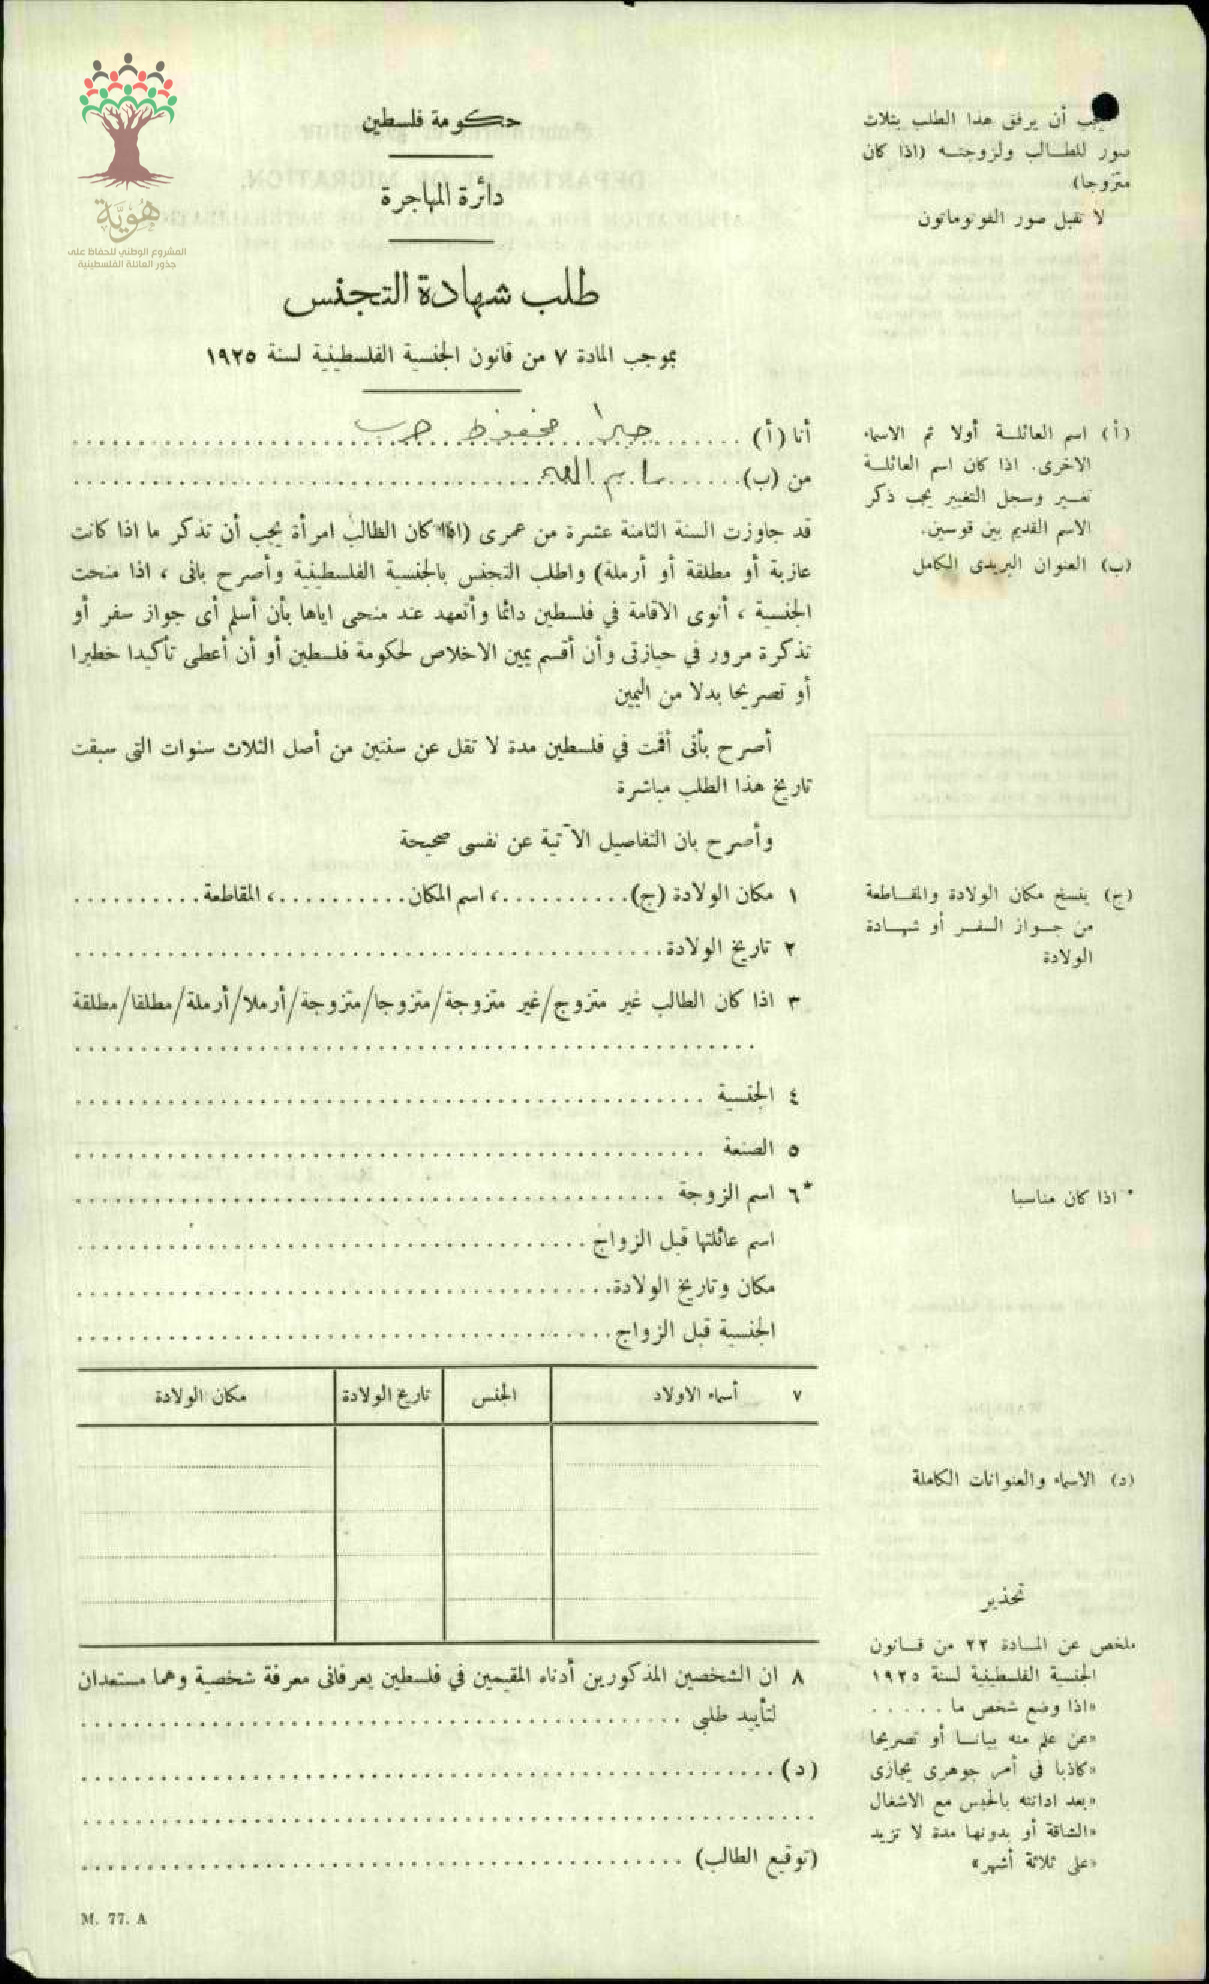 هوية
المشروع الوطني للحفاظ على
جذور العائلة الفلسطينية
حكومة فلسطين
دائرة المهاجرة
طلب شهادة التجنس
بموجب المادة ٧ من قانون الجنسية الفلسطينية لسنة ١٩٢٥
يجب أن يرفق هذا الطلب بثلاث
صور للطالب ولزوجته (اذا كان
متزوجا)
لا تقبل صور الفوتوماتون
أنا (أ) جبرا محفوظ حرب
من (ب) رام الله
(أ) اسم العائلة أولا ثم الاسماء
الاخرى. اذا كان اسم العائلة
تغير وسجل التغيير يجب ذكر
الاسم القديم بين قوسين.
(ب) العنوان البريدى الكامل
قد جاوزت السنة الثامنة عشرة من عمرى (اذا كان الطالب امرأة يجب أن تذكر ما اذا كانت
عازبة أو مطلقة أو أرملة) واطلب التجنس بالجنسية الفلسطينية وأصرح بانى ، اذا منحت
الجنسية ، أنوى الاقامة في فلسطين دائما وأتعهد عند منحى اياها بأن أسلم أى جواز سفر أو
تذكرة مرور في حيازتى وأن أقسم يمين الاخلاص لحكومة فلسطين أو أن أعطى تأكيدا خطيرا
أو تصريحا بدلا من اليمين
أصرح بأنى أقمت في فلسطين مدة لا تقل عن سنتين من أصل الثلاث سنوات التى سبقت
تاريخ هذا الطلب مباشرة
وأصرح بان التفاصيل الآتية عن نفسى صحيحة
١ مكان الولادة (ج)..........، اسم المكان..........، المقاطعة..........
(ج) ينسخ مكان الولادة والمقاطعة
من جواز السفر أو شهادة
الولادة
٢ تاريخ الولادة
٣ اذا كان الطالب غير متزوج/غير متزوجة/متزوجا/متزوجة/أرملا/أرملة/مطلقا/مطلقة
٤ الجنسية
٥ الصنعة
*٦ اسم الزوجة
* اذا كان مناسبا
اسم عائلتها قبل الزواج
مكان وتاريخ الولادة
الجنسية قبل الزواج
٧ أسماء الاولاد | الجنس | تاريخ الولادة | مكان الولادة
(د) الاسماء والعنوانات الكاملة
٨ ان الشخصين المذكورين أدناه المقيمين في فلسطين يعرفانى معرفة شخصية وهما مستعدان
لتأييد طلبى
(د)
(توقيع الطالب)
تحذير
ملخص عن المادة ٢٢ من قانون
الجنسية الفلسطينية لسنة ١٩٢٥
«اذا وضع شخص ما . . . . .
«عن علم منه بيانا أو تصريحا
«كاذبا في أمر جوهرى يجازى
«بعد ادانته بالحبس مع الاشغال
«الشاقة أو بدونها مدة لا تزيد
«على ثلاثة أشهر»
M. 77. A